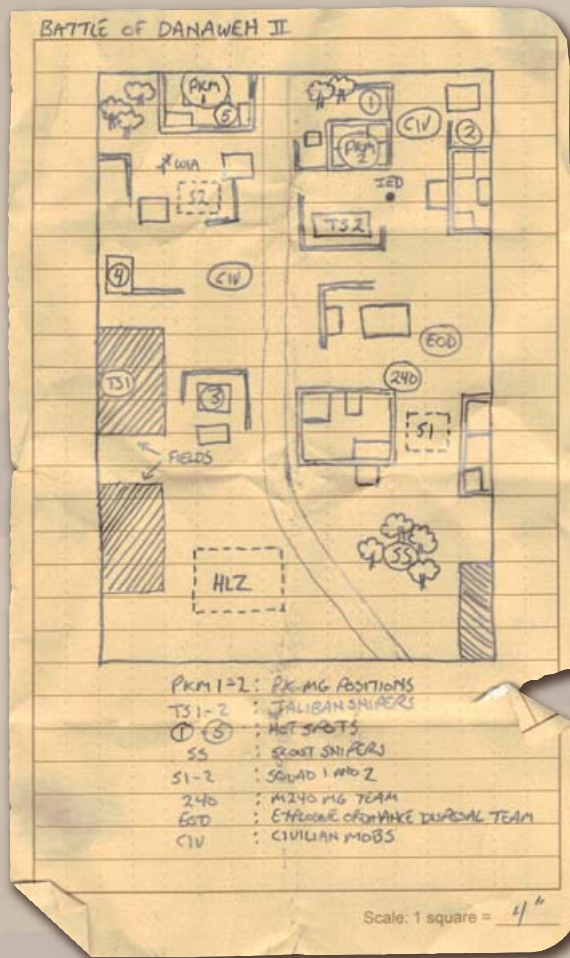 BATTLE OF DANAWEH II
PKM
1
5
1
CIV
2
PKM
2
WIA
IED
S2
TS2
4
CIV
EOD
TS1
3
240
S1
FIELDS
SS
HLZ
PKM 1-2 : PK-MG POSITIONS
TS 1-2 : TALIBAN SNIPERS
1 - 5 : HOT SPOTS
SS : SCOUT SNIPERS
S1-2 : SQUAD 1 AND 2
240 : M240 MG TEAM
EOD : EXPLOSIVE ORDNANCE DISPOSAL TEAM
CIV : CIVILIAN MOBS
Scale: 1 square = 4"